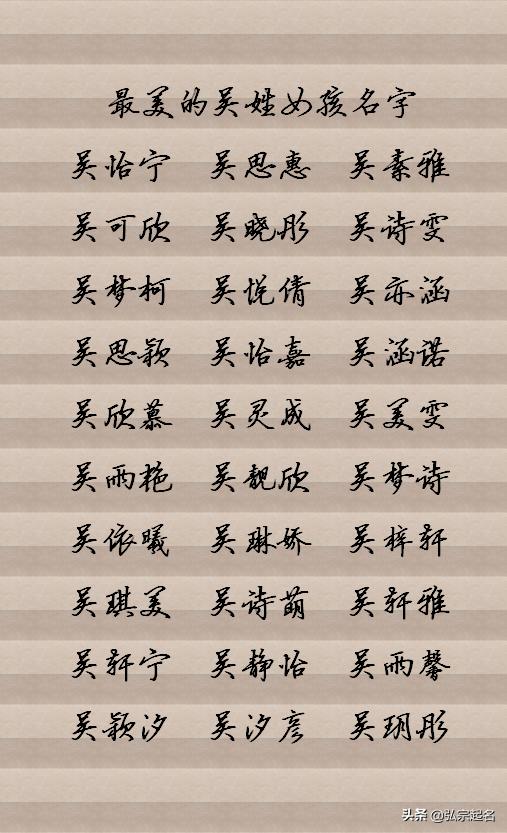 最美的吴姓女孩名字
吴怡宁 吴思惠 吴素雅
吴可欣 吴晓彤 吴诗雯
吴梦柯 吴悦倩 吴亦涵
吴思颖 吴怡嘉 吴涵诺
吴欣慕 吴灵成 吴美雯
吴雨艳 吴靓欣 吴梦诗
吴依曦 吴琳娇 吴梓轩
吴琪美 吴诗萌 吴轩雅
吴轩宁 吴静怡 吴雨馨
吴颖汐 吴汐彦 吴玥彤
头条 @弘宗起名